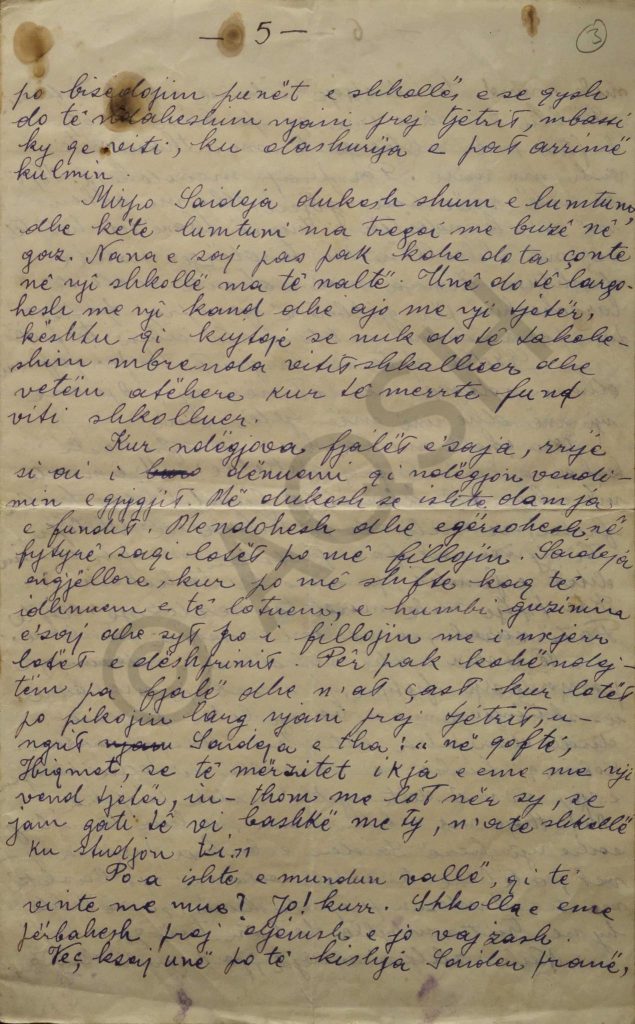 — 5 —
3
po bisedojim punët e shkollës e se qysh
do të ndaheshum njani prej tjetrit, mbassi
ky qe viti, ku dashunija e pat arrimë
kulmin.
Mirpo Saideja dukesh shum e lumtuni,
dhe këte lumtuni ma tregoi me buzë në
gaz. Nana e saj pas pak kohe do ta çonte
në nji shkollë ma të naltë. Unë do të largo-
hesh me nji kand dhe ajo me nji tjetër,
kështu qi kujtojë se nuk do të takohe-
shim mbrenda vitit shkolluer dhe
vetëm atëhere kur të merrte fund
viti shkolluer.
Kur ndëgjova fjalët e'saja, rrijë
si ai i dënuemi qi ndëgjon vendi-
min e gjygjit. Më dukesh se ishte damja
e fundit. Mendohesh dhe egërsohesh në
fytyrë saqi lotët po më fillojin. Saideja
engjëllore, kur po më shifte kaq të
idhnuem e të lotuem, e humbi guzimin
e'saj dhe syt po i fillojin me i nxjerr
lotët e dëshprimit. Për pak kohë ndej-
tëm pa fjalë dhe n'at çast kur lotët
po pikojin larg njani prej tjetrit, u-
ngrit Saideja e tha: „ në qoftë,
Hiqmet, se të mërzitet ikja e eme me nji
vend tjetër, un-thom me lot nër sy, se
jam gati të vi bashkë me ty, n'ate shkollë
ku studjon ti."
Po a ishte e mundun vallë, qi të
vinte me mue? Jo! kurr. Shkolla e eme
përbahesh prej djemsh e jo vajzash.
Veç ksaj unë po të kishja Saiden pranë,
© AQSH